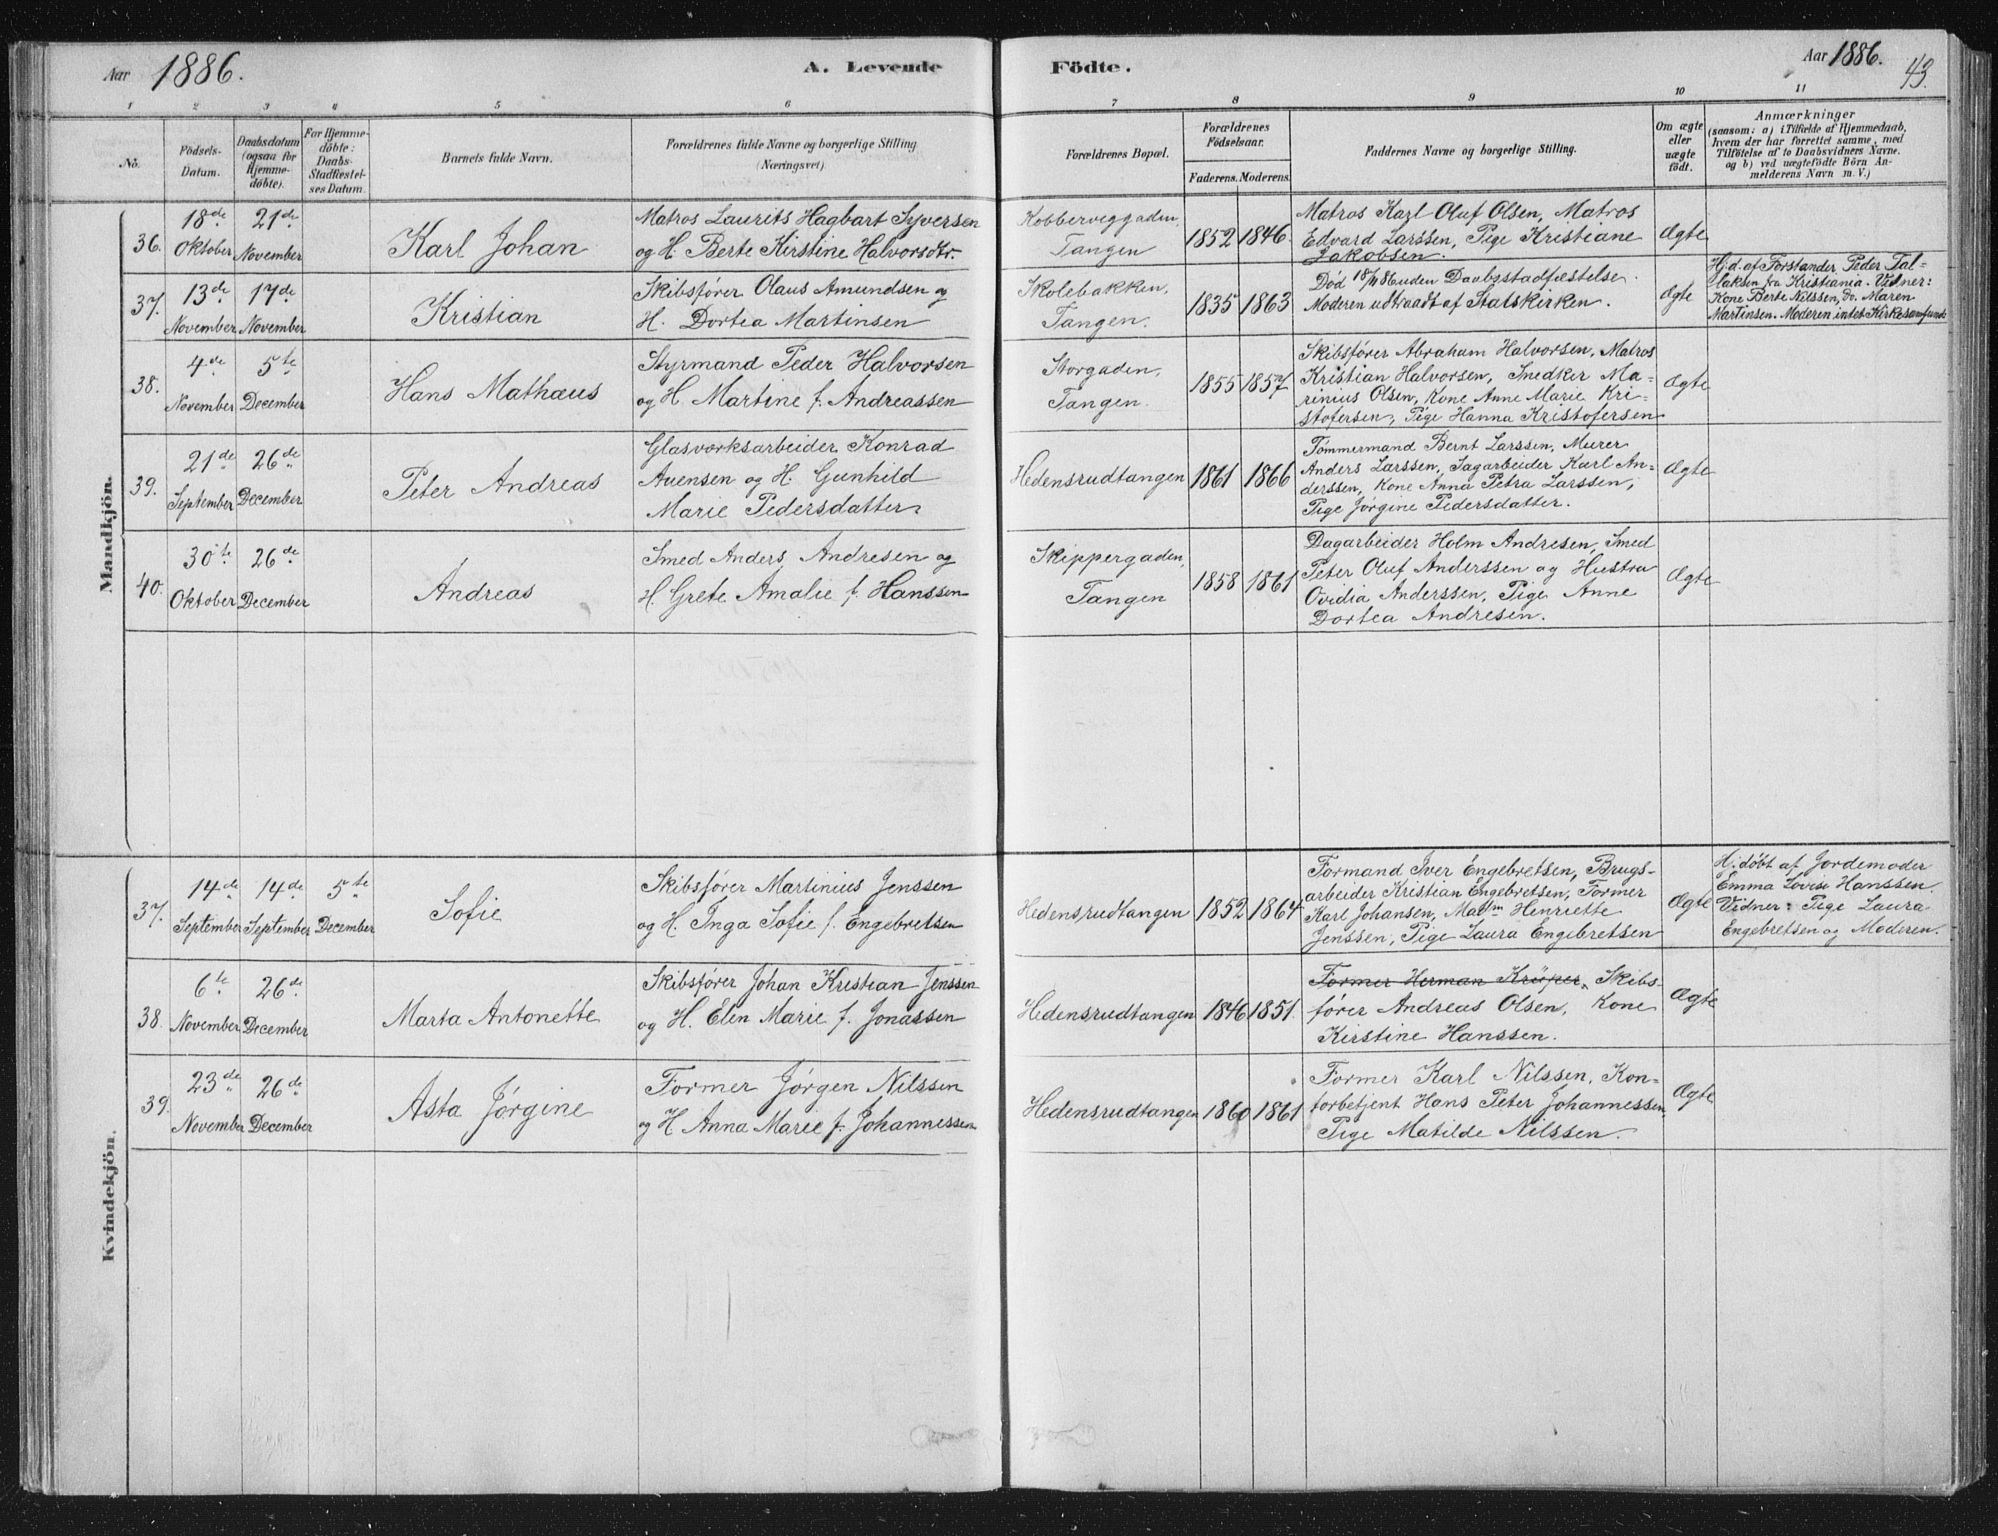 Aar 1886.
A. Levende Födte.
Aar 1886.
43.
1 2 3 4 5 6 7 8 9 10 11
No.
Födsels-
Datum.
Daabsdatum
(ogsaa for
Hjemme-
döbte).
For Hjemme-
döbte:
Daabs-
Stadfæstel-
ses Datum.
Barnets fulde Navn.
Forældrenes fulde Navne og borgerlige Stilling
(Næringsvei).
Forældrenes Bopæl.
Forældrenes
Födselsaar.
Faderens. Moderens.
Faddernes Navne og borgerlige Stilling.
Om ægte
eller
uægte
födt.
Anmærkninger
(saasom: a) i Tilfælde af Hjemmedaab,
hvem der har forrettet samme, med
Tilföielse af to Daabsvidners Navne.
og b) ved uægtefödte Börn An-
melderens Navn m. V.)
Mandkjön.
36.
18de
Oktober
21de
November
Karl Johan
Matros Laurits Hagbart Syversen
og H. Berte Kirstine Halvorsdtr.
Kobberveggaden,
Tangen
1852 1846.
Matros Karl Oluf Olsen, Matros
Edvard Larssen, Pige Kristiane
Jakobsen.
Ægte
37.
13de
November
17de
November
Kristian
Skibsfører Olaus Amundsen og
H. Dortea Martinsen
Skolebakken,
Tangen.
1835 1863
Død 18/11 86 uden Daabsstadfæstelse.
Moderen udtraadt af Statskirken.
Ægte
Hj.d. af Forstander Peder Tal-
laksen fra Kristiania. Vidner:
Kone Berte Nilssen, do. Maren
Martinsen. Moderen intet Kirkesamfund
38.
4de
November
5te
December
Hans Mathæus
Styrmand Peder Halvorsen
og H. Martine f. Andreassen
Storgaden,
Tangen.
1855 1857
Skibsfører Abraham Halvorsen, Matros
Kristian Halvorsen, Snedker Ma-
rinius Olsen, Kone Anne Marie Kri-
stofersen, Pige Hanna Kristofersen
Ægte
39.
21de
September
26de
December
Peter Andreas
Glasværksarbeider Konrad
Auensen og H. Gunhild
Marie Pedersdatter
Hedensrudtangen
1861 1866
Tømmermand Bernt Larssen, Murer
Anders Larssen, Sagarbeider Karl An-
derssen, Kone Anna Petra Larssen,
Pige Jørgine Pedersdatter.
Ægte
40.
30te
Oktober
26de
December
Andreas
Smed Anders Andresen og
H. Grete Amalie f. Hanssen
Skippergaden,
Tangen
1858 1861
Dagarbeider Holm Andresen, Smed
Peter Oluf Anderssen og Hustru
Ovidia Anderssen, Pige Anne
Dortea Andresen.
Ægte
Kvindekjön.
37.
14de
September
14de
September
5te
December
Sofie
Skibsfører Martinius Jenssen
og H. Inga Sofie f. Engebretsen
Hedensrudtangen
1852 1864
Formand Iver Engebretsen, Brugs-
arbeider Kristian Engebretsen, Former
Karl Johansen, Madm Henriette
Jenssen, Pige Laura Engebretsen
Ægte
Hj. døbt af Jordemoder
Emma Lovise Hanssen.
Vidner: Pige Laura
Engebretsen og Moderen.
38.
6te
November
26de
December
Marta Antonette
Skibsfører Johan Kristian Jenssen
og H. Elen Marie f. Jonassen
Hedensrudtangen
1846 1851.
Former Herman Krøger, Skibs-
fører Andreas Olsen, Kone
Kirstine Hanssen.
Ægte
39.
23de
November
26de
December
Asta Jørgine
Former Jørgen Nilssen
og H. Anna Marie f. Johannessen
Hedensrudtangen
1860 1861
Former Karl Nilssen, Kon-
torbetjent Hans Peter Johannessen
Pige Matilde Nilssen.
Ægte